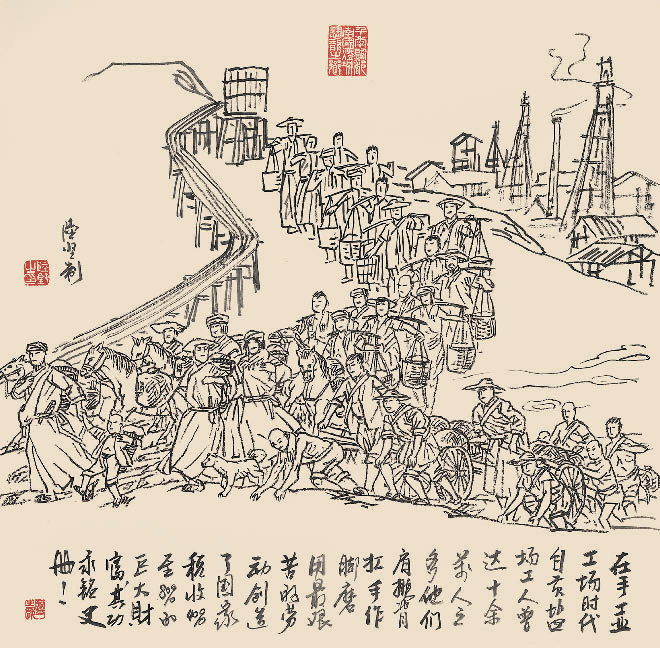 在手工业
工场时代
自贡盐
场工人曾
达十余
万人之
多他们
肩挑背
扛手作
脚磨
用最艰
苦的劳
动创造
了国家
税收
的
巨大财
富其功
永铭史
册！